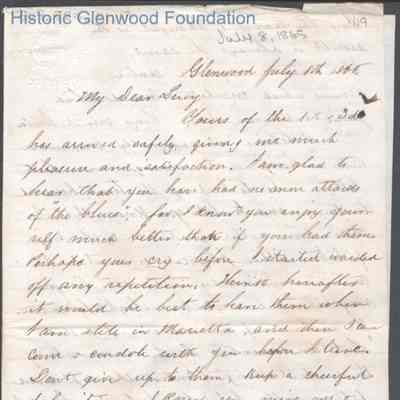 Historic Glenwood Foundation
1/19
July 8, 1865
Glenwood July 8th 1865
My Dear Lucy
Yours of the 1st & 3d
has arrived safely giving me much
pleasure and satisfaction. I am glad to
hear that you have had no more attacks
of "the blues", for I know you enjoy your-
self much better than if you had them.
Perhaps your cry before I started warded
off any repetition. I think hereafter
it would be best to have them when
I am still in Marietta, and then I can
come & condole with you before I leave.
Dont give up to them, keep a cheerful